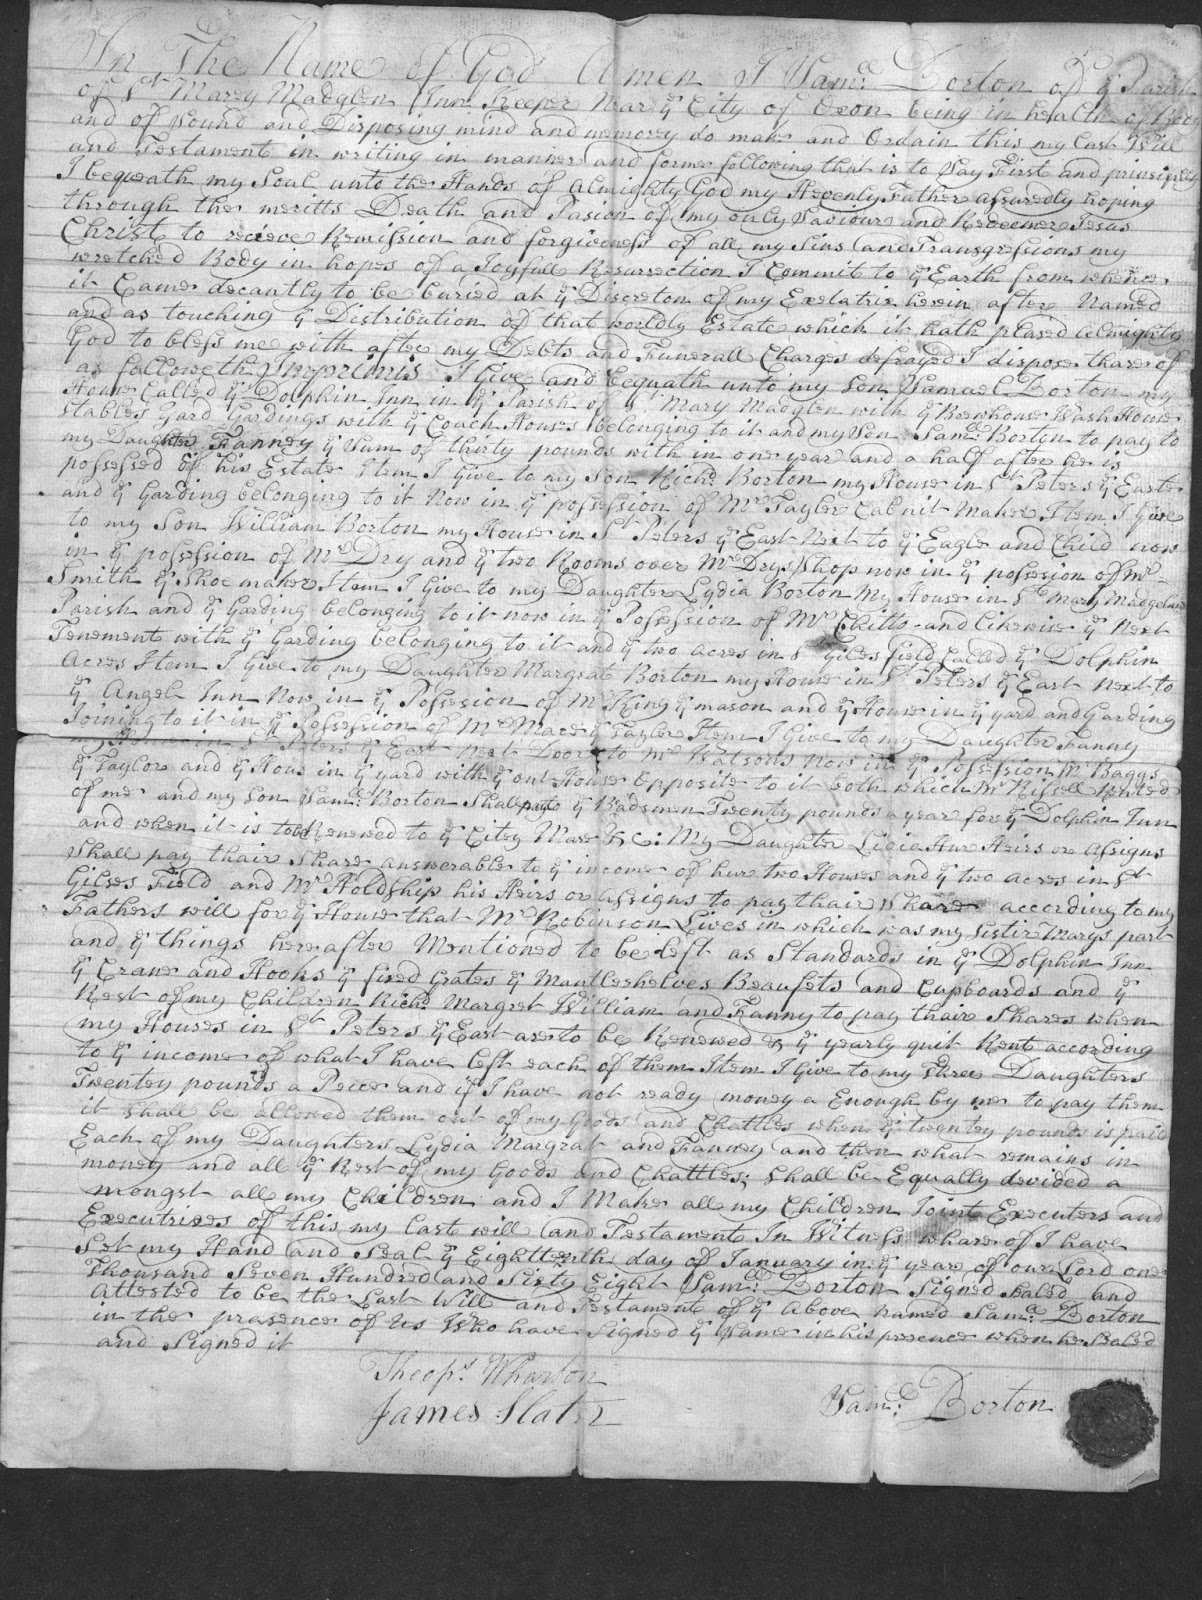 In The Name of God Amen I Sam:ll Borton of ye Parish
of St Marey Madglen Inn Keeper Near ye City of Oxon being in health of Body
and of Sound and Disposing mind and memorey do make and Ordain this my Last Will
and Testament in writing in manner and forme following that is to Say First and prinsiply
I bequeath my Soal unto the Hands of Almighty God my Hevenly Father assuredly hoping
through the meritts Death and Pasion of my only Saviour and Redeemer Jesus
Christ to recieve Remission and forgiveness of all my Sins and Transgressions my
wretched Body in hopes of a Joyfull Resurrection I Commit to ye Earth from whence
it Came decantly to be buried at ye Discreton of my Exelatrix herein after Named
and as touching ye Distribution of that worldly Estate which it hath plased Almighty
God to bless me with after my Debts and Funerall Charges defrayed I dispose thare of
as followeth Imprimis I Give and bequath unto my Son Samuel Borton my
House Called ye Dolphin Inn in ye Parish of St Mary Madglen with ye Brewhouse Wash House
Stables Gard Gardings with ye Coach Houses belonging to it and my Son Sam:ll Borton to pay to
my Daughter Fanney ye Sum of thirty pounds with in one year and a half after he is
possessed of his Estate Item I Give to my Son Richd Borton my House in St Peters ye Easte
and ye Garding belonging to it Now in ye possession of Mr Tayler Cabnit Maker Item I Give
to my Son William Borton my House in St Peters ye East Next to ye Eagle and Child now
in ye possession of Mr Dry and ye two Rooms over Mr Drys Shop now in ye possesion of Mr
Smith ye Shoe maker Item I Give to my Daughter Lydia Borton My House in St Mary Madgelane
Parish and ye Garding belonging to it now in ye Possession of Mr Chitto and likewise ye Next
Tenement with ye Garding belonging to it and ye two acres in St Giles field Called ye Dolphin
Acres Item I Give to my Daughter Margrat Borton my House in St Peters ye East next to
ye Angel Inn Now in ye Possesion of Mr King ye mason and ye House in ye yard and Garding
Joining to it in ye Possession of Mr Mace ye Tayler Item I Give to my Daughter Fanny
my House in St Peters ye East Next Door to Mr Watsons Now in ye Possession Mr Baggs
ye Taylor and ye Hous in ye yard with ye out House Opposite to it both which Mr Rissell Rented
of me and my Son Sam:ll Borton Shall pay to ye Badsmen Twenty pounds a year for ye Dolphin Inn
and when it is to be Renewed to ye Citey Mare &c: My Daughter Lidia Hur Heirs or Assigns
Shall pay thair Share answerable to ye income of hur two Houses and ye two acres in St
Gilses Field and Mr Holdship his Heirs or assigns to pay thair Share according to my
Fathers will for ye House that Mr Robinson Lives in which was my Sistir Marys part
and ye things here after Mentioned to be left as Standards in ye Dolphin Inn
ye Crane and Hooks ye fired Grates ye Mantleshelves Beaufets and Cupboards and ye
Rest of my Children Richd Margret William and Fanny to pay thair Shares when
my Houses in St Peters ye East are to be Renewed & ye yearly quit Rent according
to ye income of what I have left each of them Item I Give to my three Daughters
Twentey pounds a Peice and if I have not ready money a Enough by me to pay them
it Shall be allowed them out of my Goods and Chattles when ye twentey pounds is paid
Each of my Daughters Lydia Margrat and Fanney and then what remains in
money and all ye Rest of my Goods and Chattles; Shall be Equally devided a
mongst all my Children and I Make all my Children Joint Executers and
Executrixes of this my Last will and Testament In Witness whare of I have
Set my Hand and Seal ye Eighttenth day of January in ye year of our Lord one
Thousand Seven Hundred and Sixty Eight Sam:ll Borton Signed Sealed and
Attested to be the Last Will and Testament of ye Above named Sam:ll Borton
in the presance of Us Who have Signed ye Same in his presence when he Sealed
and Signed it
Theops Wharton
James Slater
Sam:ll Borton